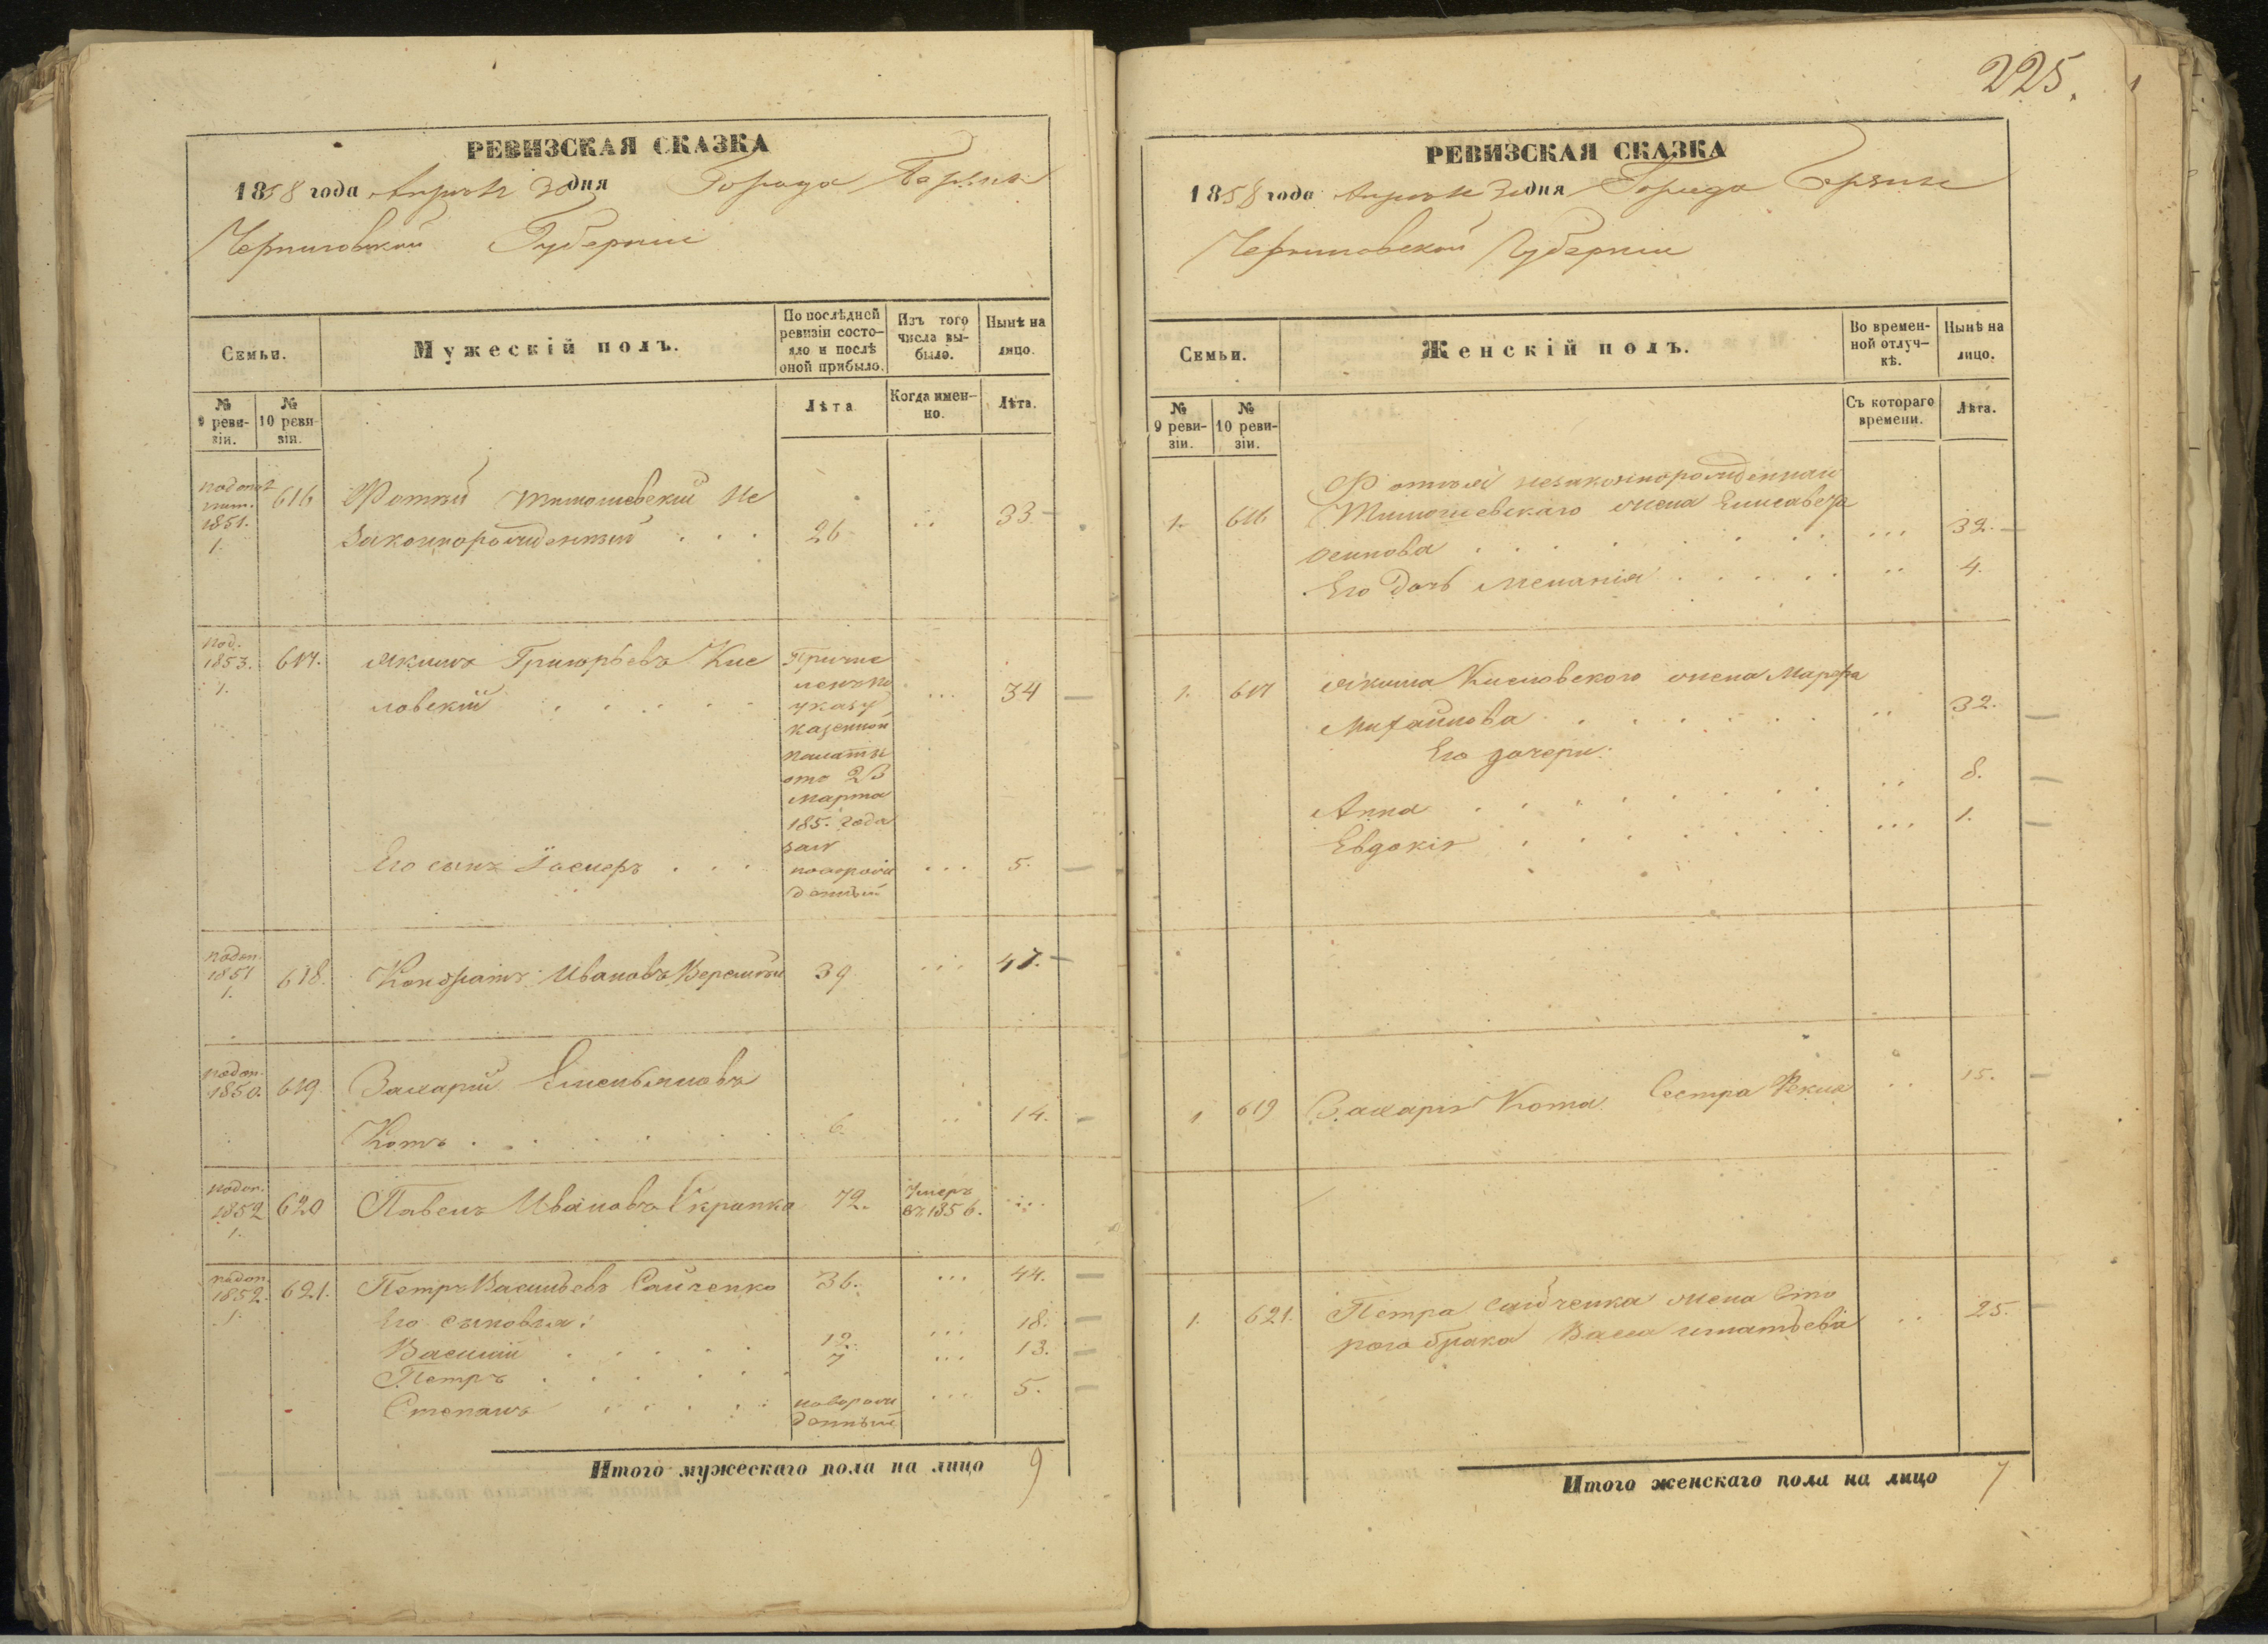 225.
РЕВИЗСКАЯ СКАЗКА
1858 года Апрѣля 30 дня Города Борзны
Черниговской Губерніи
Семьи.
Мужескій полъ.
По послѣдней ревизіи состо-
яло и послѣ
оной прибыло.
Изъ того
числа вы-
было.
Нынѣ на
лицо.
№
9 реви-
зіи.
№
10 реви-
зіи.
Лѣта
Когда имен-
но.
Лѣта.
1851.
1.
616 Фотій Тимошевскій Не
законнорожденный . . . 26 .. 33.
под.
1853.
1.
617. Якимъ Григорьевъ Кис
ловскій . . . . . ... 34
Причис
ленъ по
указу
казенной
палаты
отъ 23
Марта
185. года
Его сынъ . . . ... 5.
новорож
денный
подоп.
1851
1.
618. Кондратъ Ивановъ 39 ... 47.
подоп.
1850.
619. Захарій Емельяновъ
Котъ . . . . . . 6. .. 14.
подоп.
1852
1.
620 Павелъ Ивановъ Скрипка 72. Умеръ
въ 1856. ...
подоп.
1852.
1.
621. Петръ Васильевъ Сайченко 36. ... 44.
Его сыновья:
Василій . . . . . 12. ... 18.
Петръ . . . . . . 7 ... 13.
Степанъ . . . . . новорож
денный ... 5.
Итого мужескаго пола на лицо 9
РЕВИЗСКАЯ СКАЗКА
1858 года Апрѣля 30 дня Города Борзны
Черниговской Губерніи
Семьи.
Женскій полъ.
Во времен-
ной отлуч-
кѣ.
Нынѣ на
лицо.
№
9 реви-
зіи.
№
10 реви-
зіи.
Съ котораго
времени.
Лѣта.
Фотія незаконнорожденнаго
1. 616 Тимошевскаго жена Елисавета
Осипова . . . . . . . ... 32.
Его дочь Меланія . . . . . .. 4.
1. 617 Якима Кисловского жена Марфа
Михайлова . . . . . . .. 32.
Его дочери:
Анна . . . . . . . .. 8.
Евдокія . . . . . . ... 1.
1 619 Захарія Кота Сестра Фекла .. 15.
1. 621. Петра Сайченка жена вто
рого брака Васса Игнатьева .. 25.
Итого женскаго пола на лицо 7